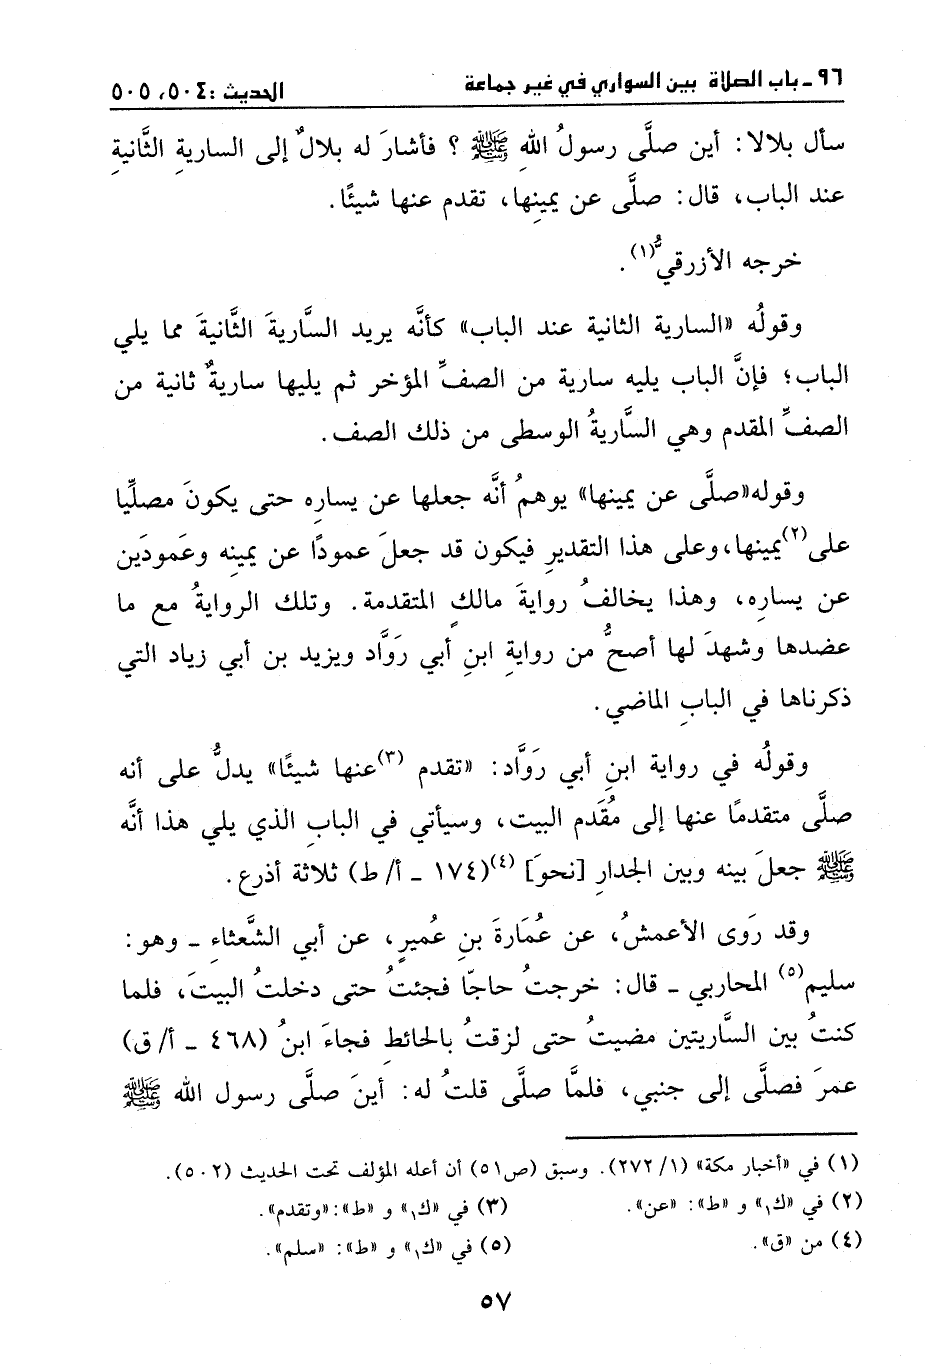 ٩٦ ـ باب الصلاة بين السواري في غير جماعة الحديث : ٥٠٤، ٥٠٥
سأل بلالا: أين صلَّى رسولُ اللهِ ﷺ ؟ فأشارَ له بلالٌ إلى الساريةِ الثَّانيةِ
عند الباب، قال: صلَّى عن يمينِها، تقدم عنها شيئًا.
خرجه الأزرقيُّ(١).
وقولُه «السارية الثانية عند الباب» كأنَّه يريد السَّاريةَ الثَّانيةَ مما يلي
الباب؛ فإنَّ الباب يليه سارية من الصفِّ المؤخر ثم يليها ساريةٌ ثانية من
الصفِّ المقدم وهي السَّاريةُ الوسطى من ذلك الصف.
وقوله«صلَّى عن يمينها» يوهمُ أنَّه جعلها عن يسارِه حتى يكونَ مصلِّيا
على(٢)يمينها، وعلى هذا التقديرِ فيكون قد جعلَ عمودًا عن يمينِه وعَمودَين
عن يسارِه، وهذا يخالفُ روايةَ مالكٍ المتقدمة. وتلك الروايةُ مع ما
عضدها وشهدَ لها أصحُّ من روايةِ ابنِ أبي رَوَّاد ويزيد بن أبي زياد التي
ذكرناها في البابِ الماضي.
وقولُه في رواية ابنِ أبي رَوَّاد: «تقدم (٣)عنها شيئًا» يدلُّ على أنه
صلَّى متقدمًا عنها إلى مُقَدم البيت، وسيأتي في البابِ الذي يلي هذا أنَّه
ﷺ جعلَ بينه وبين الجدارِ [نحوَ] (٤)(١٧٤ ـ أ/ ط) ثلاثة أذرع.
وقد رَوى الأعمشُ، عن عُمَارةَ بنِ عُميرٍ، عن أبي الشَّعثاءِ ـ وهو:
سليم(٥) المحاربي ـ قال: خرجتُ حاجّا فجئتُ حتى دخلتُ البيتَ، فلما
كنتُ بين السَّاريتين مضيتُ حتى لزقتُ بالحائطِ فجاءَ ابنُ (٤٦٨ ـ أ/ ق)
عمرَ فصلَّى إلى جنبي، فلمَّا صلَّى قلتُ له: أينَ صلَّى رسول الله ﷺ
(١) في «أخبار مكة» (١/ ٢٧٢). وسبق (ص٥١) أن أعله المؤلف تحت الحديث (٥٠٢).
(٢) في «ك١» و «ط»: «عن». (٣) في «ك١» و «ط»:«وتقدم».
(٤) من «ق». (٥) في «ك١» و «ط»: «سلم».
٥٧